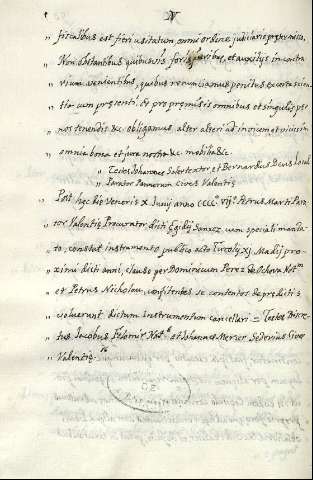 fiscalibus est fieri usitatum, omni ordine judiciario pretermisso,
„ Non obstantibus quibusvis foris, juribus, et auxiliis in contra
„ rium venientibus, quibus renunciamus penitus ex certa scien
„ tia cum presenti. Et pro premissis omnibus et singulis per
„ nos tenendis &c. obligamus, alter alteri ad invicem et vicissim
„ omnia bona et jura nostra &c. mobilia &c.
„ Testes Johannes Solertexter, et Bernardus Deus local
„ Parator Pannorum Cives Valentie
„ Post hec die Veneris X Junij anno CCCC. vijº. Petrus Marti Para
„ tor Valentie, Procurator dicti Egidij Sanxez cum speciali manda
„ to, constat instrumento publico acto Turolij XJ Madij pro
„ ximi dicti anni, clauso per Dominicum Perez de Ochova Notm
„ et Petrus Nicholau, confitentes se contentos de predictis
„ voluerunt dictum instrumentum cancellari = Testes Discre
„ tus Jacobus Notš et Johannes Mercer Sederius Cives
„ Valentie